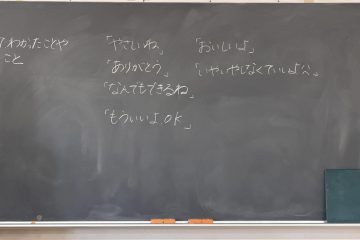 てわかったことや
こと
「やさしいね」
「ありがとう」
「なんでもできるね」
「もういいよ。OK」
「おいしいよ」
「いやいやしなくていいよ」